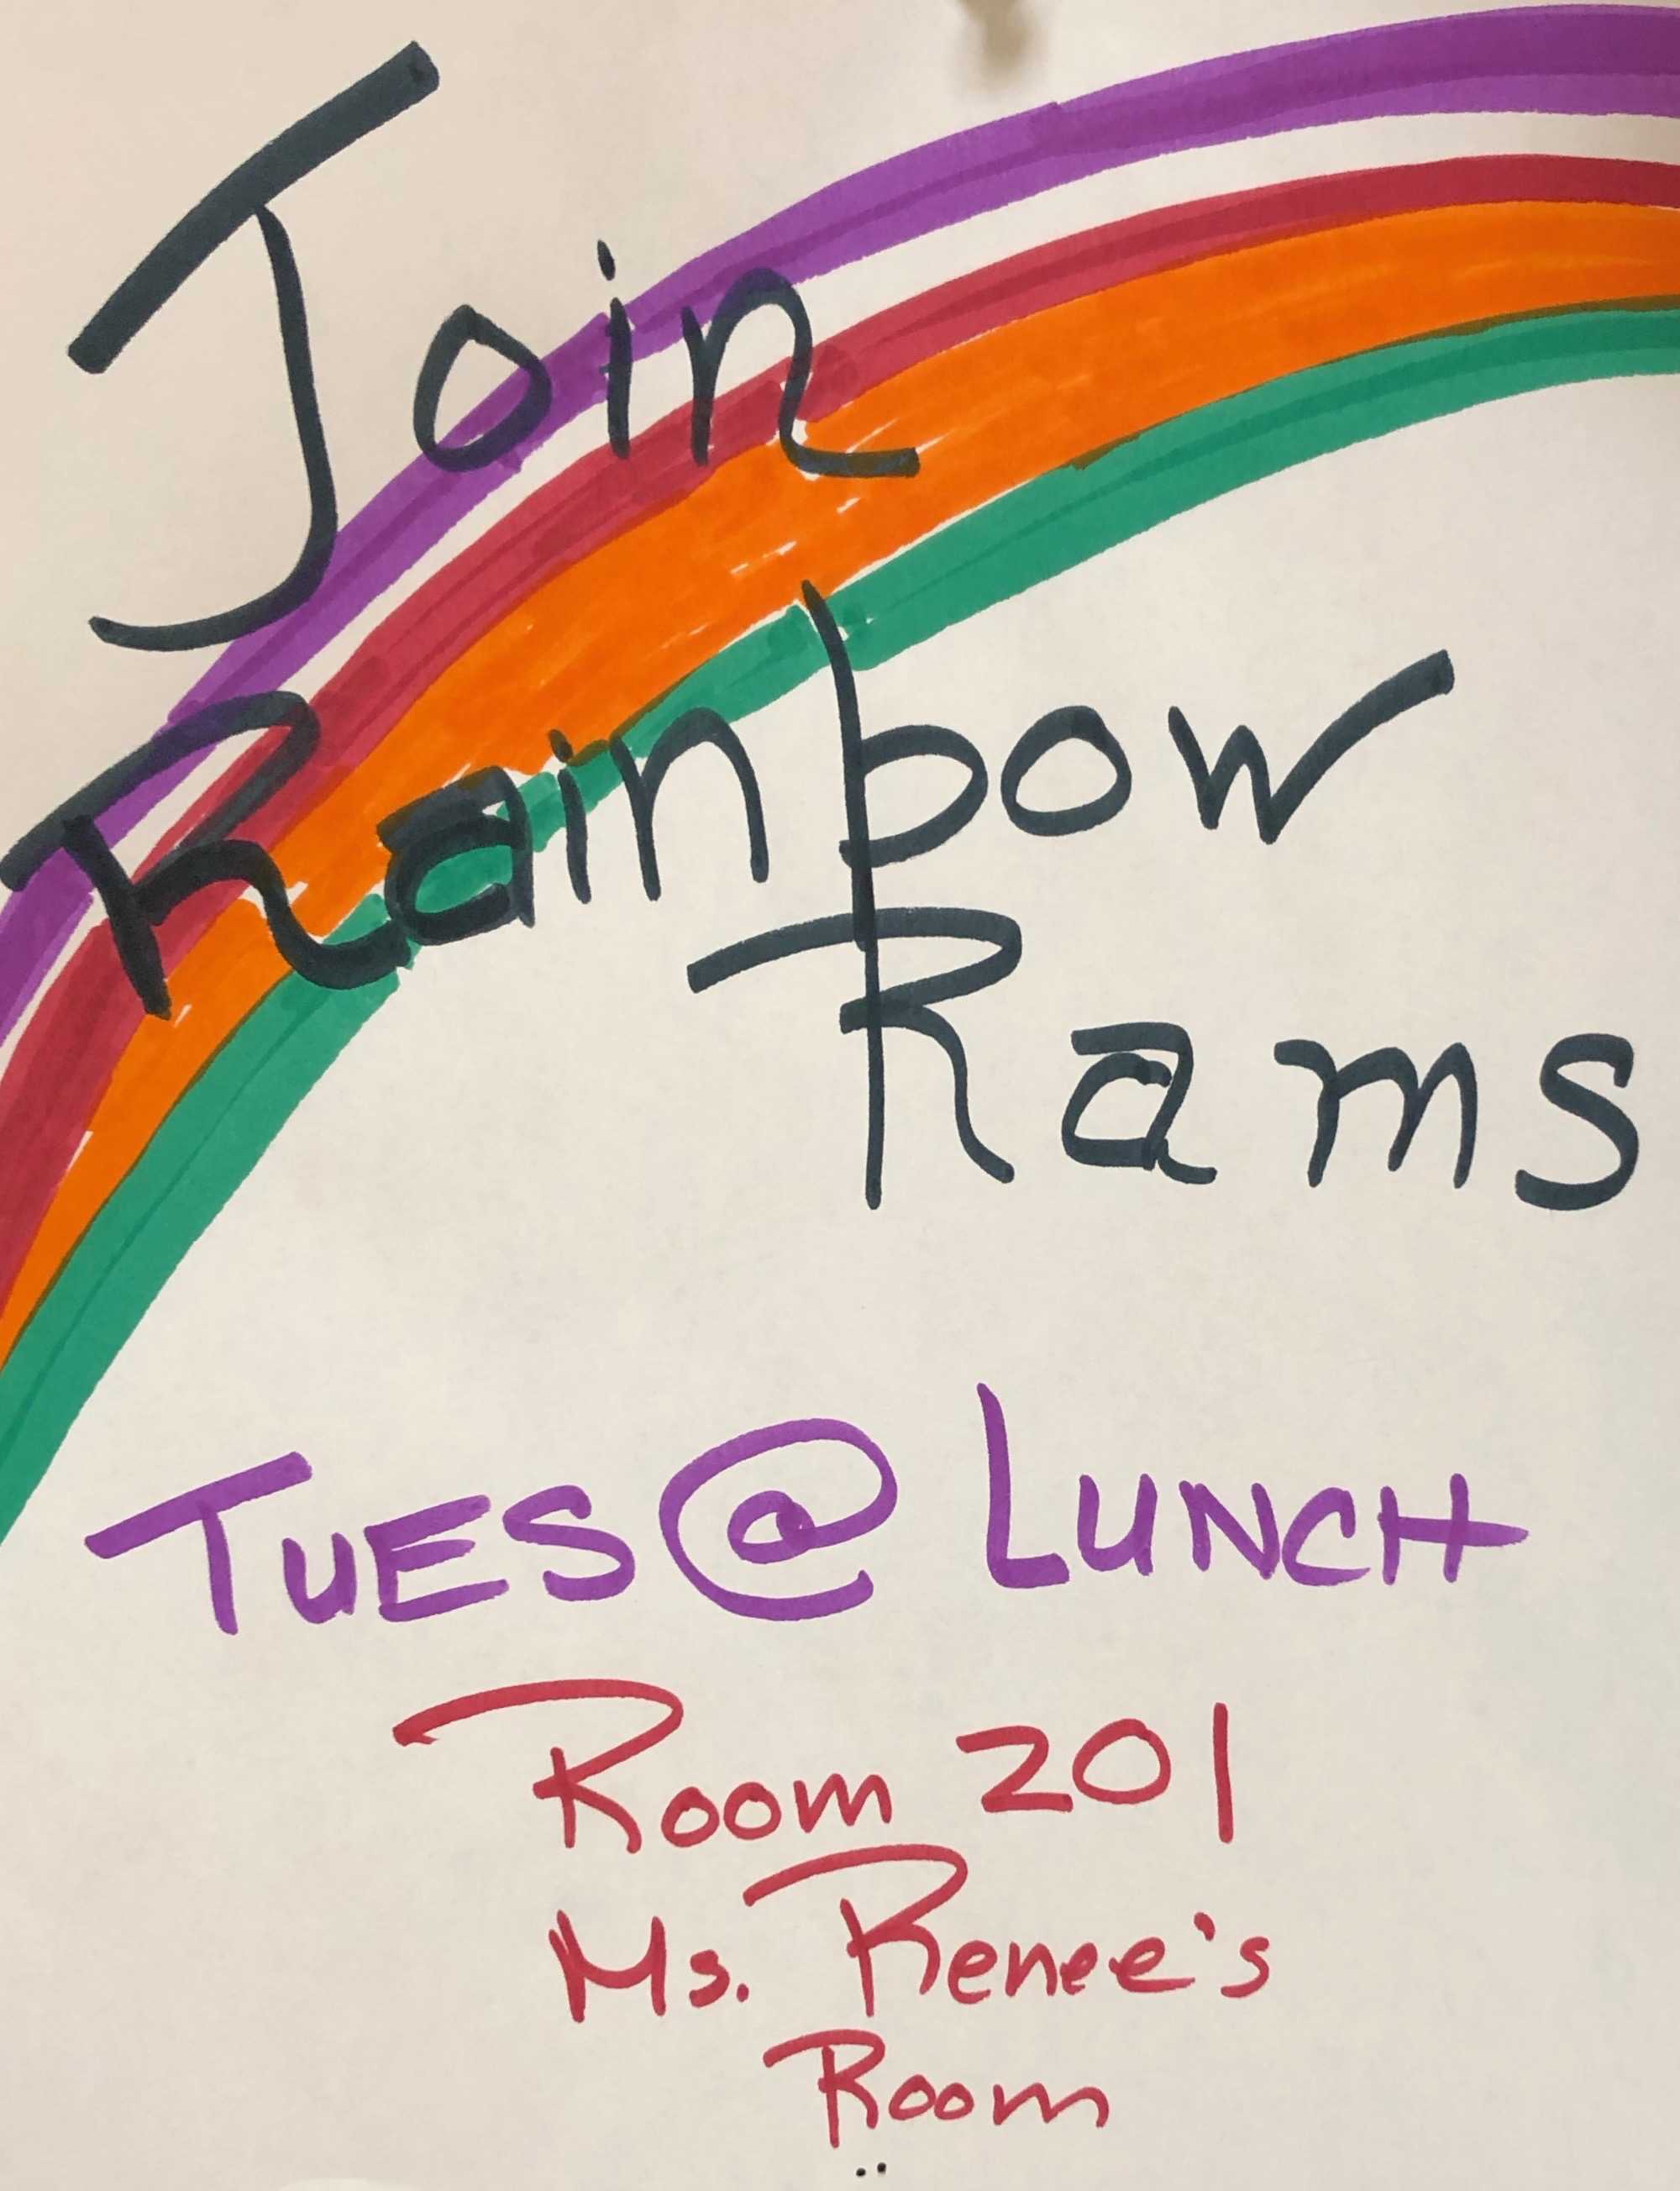 Join
Rainbow
Rams
TUES @ LUNCH
Room 201
Ms. Renee's
Room